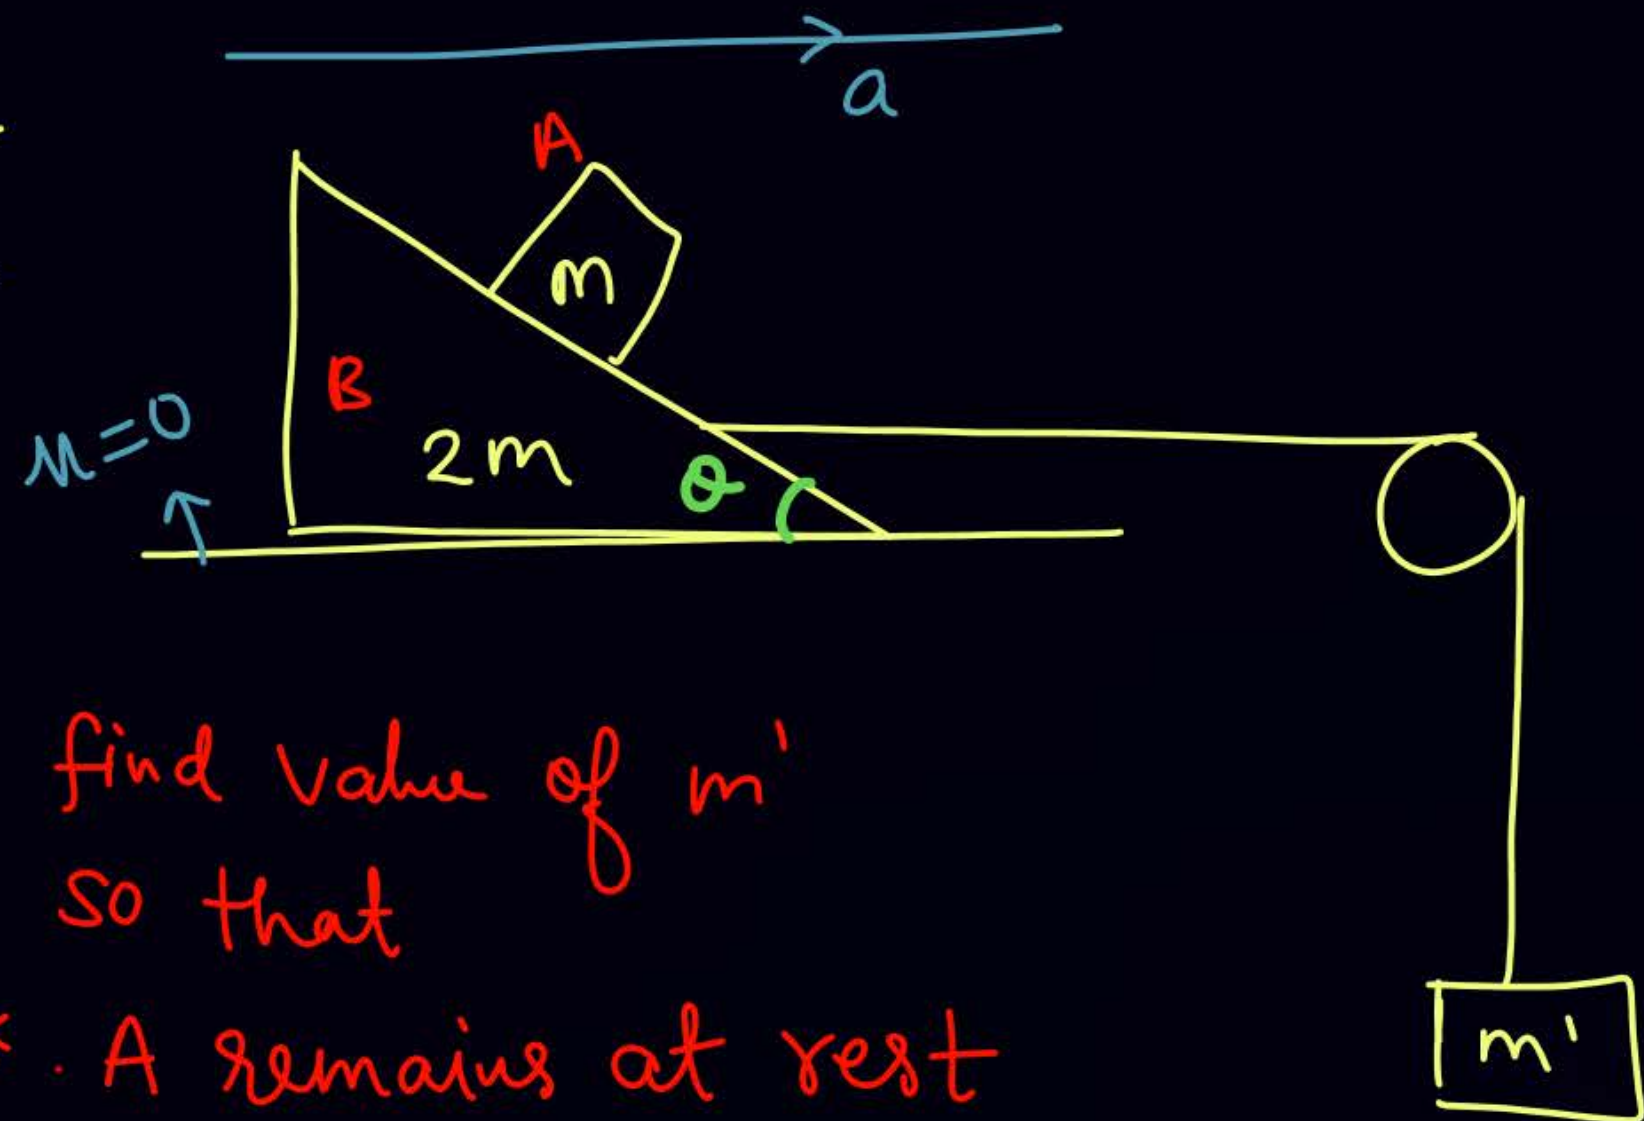 a
A
m
B
μ=0
2m
θ
find value of m'
so that
A remains at rest
m'